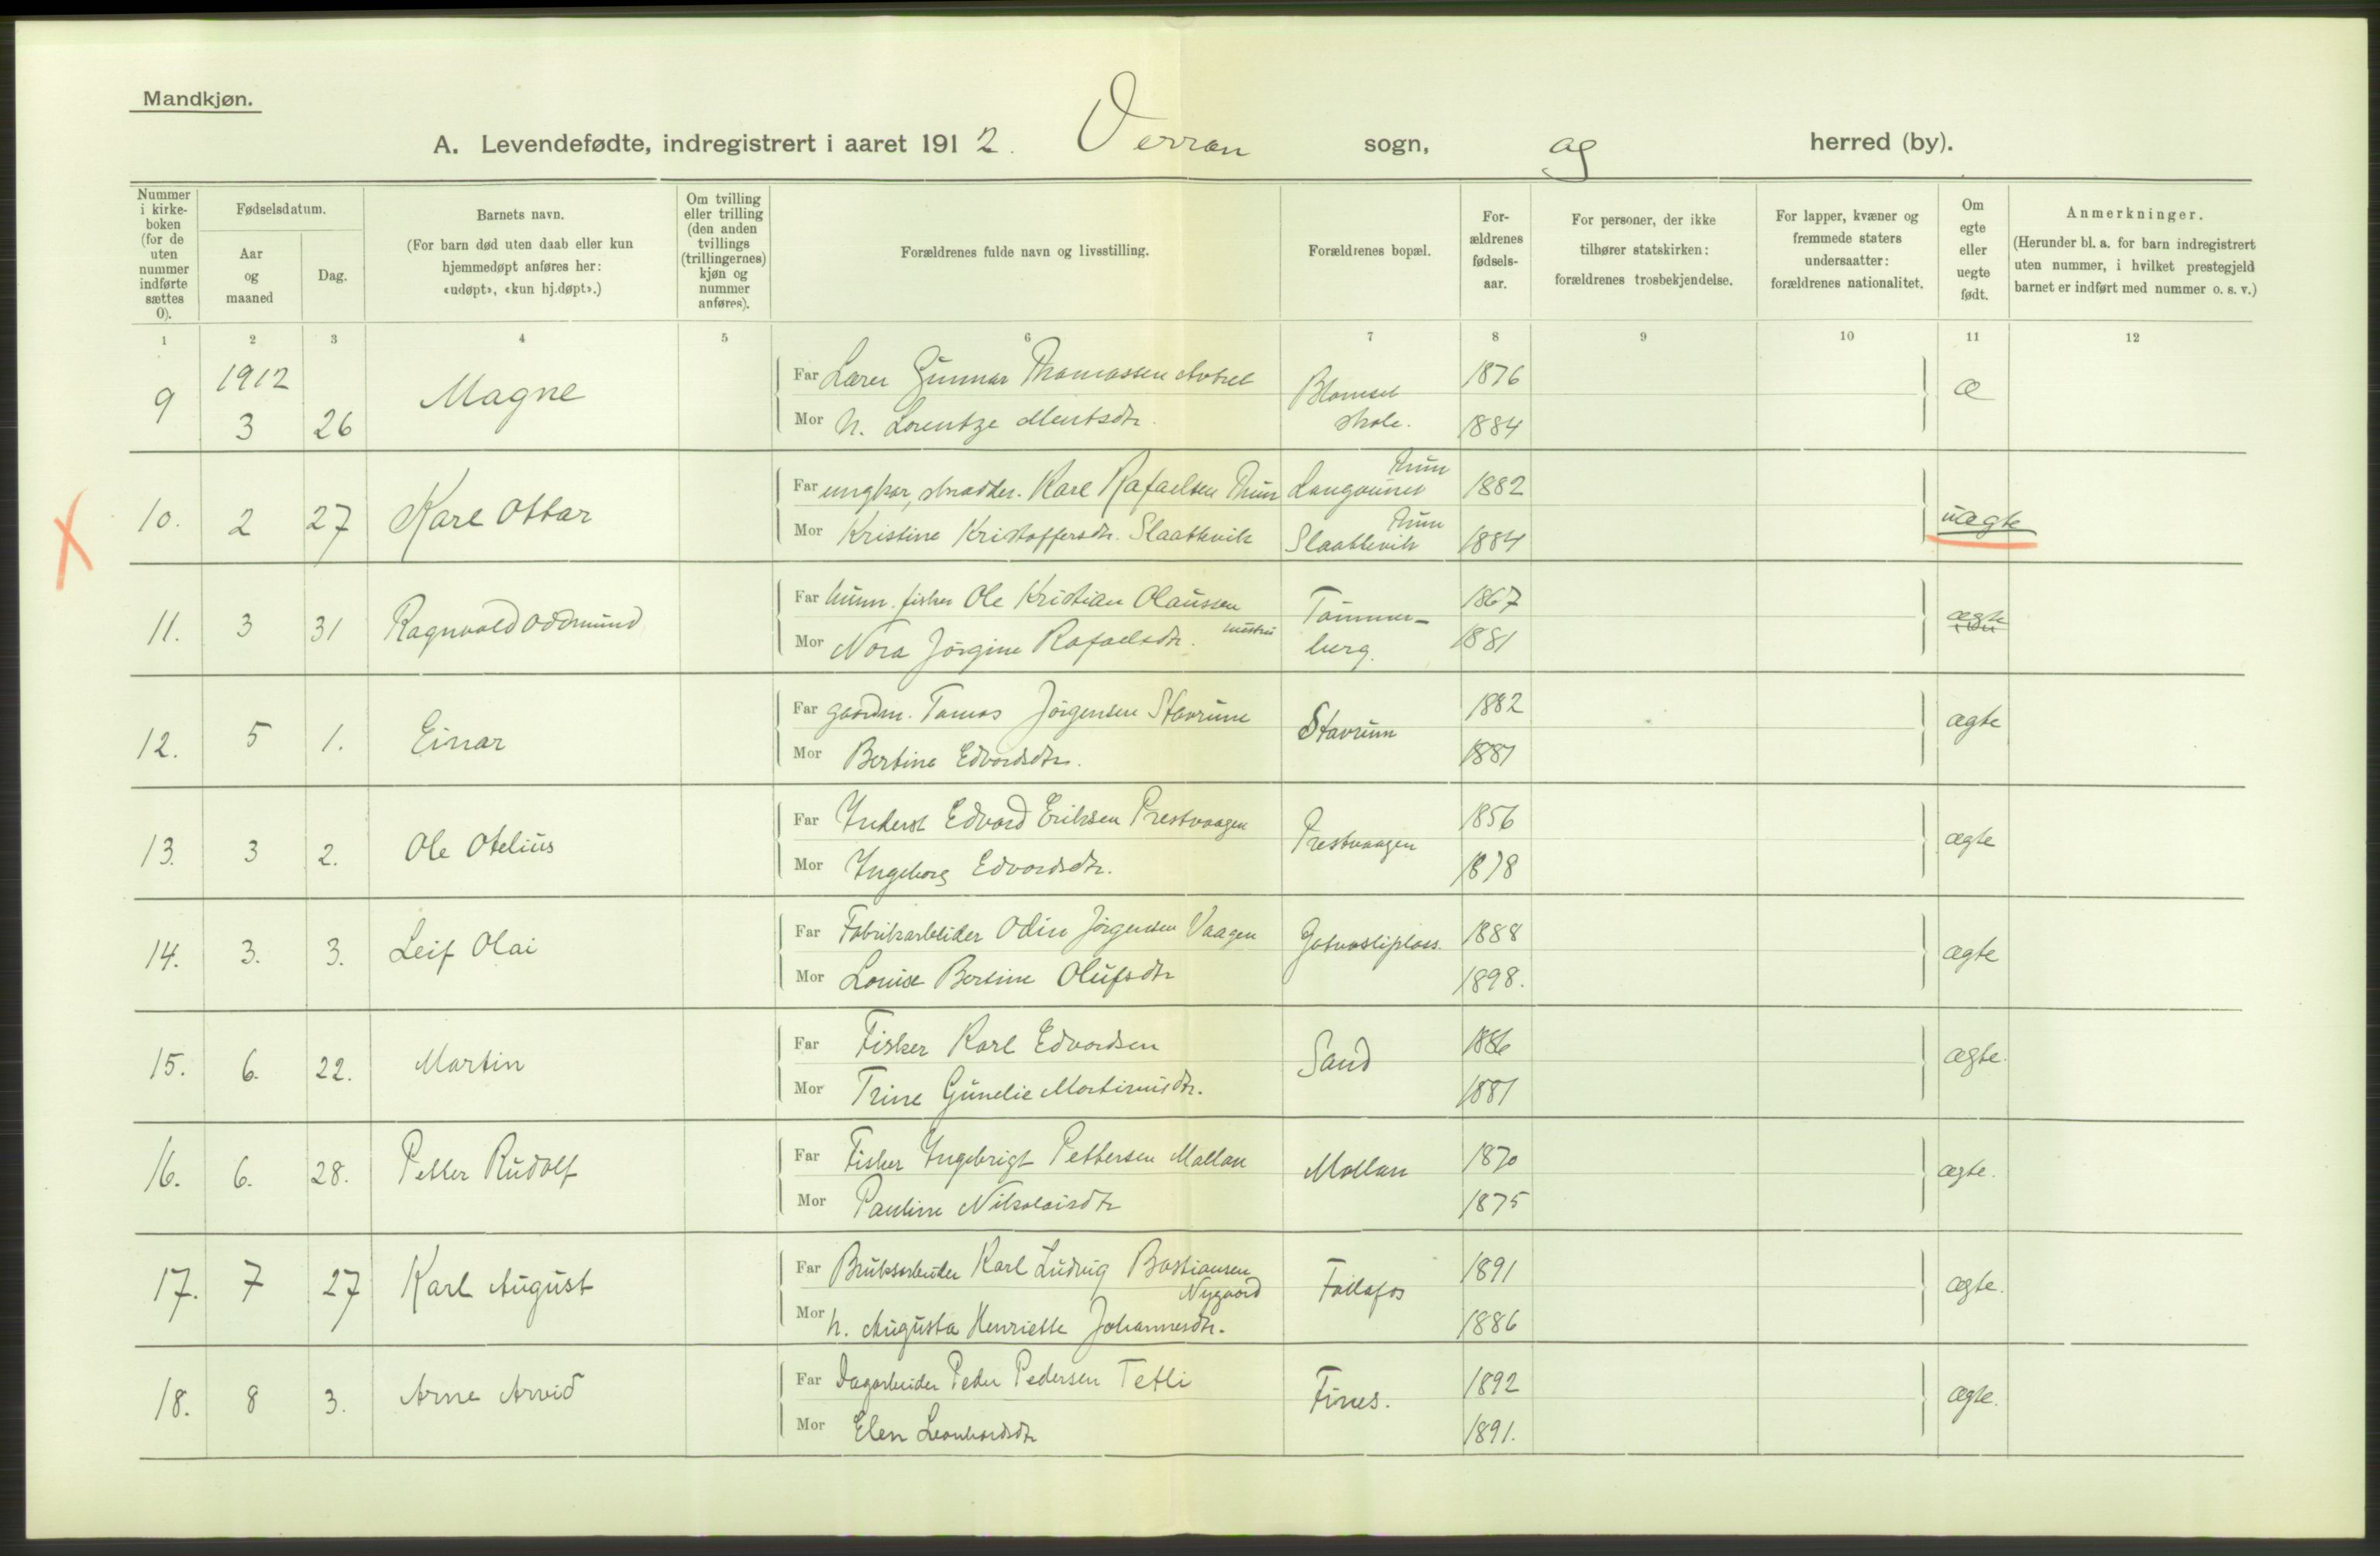 Mandkjøn.
A. Levendefødte, indregistrert i aaret 1912. Verran sogn, og herred (by).
Nummer i kirke-boken (for de uten nummer indførte sættes 0).
Fødselsdatum.
Aar og maaned
Dag.
Barnets navn.
(For barn død uten daab eller kun hjemmedøpt anføres her: «udøpt», «kun hj.døpt».)
Om tvilling eller trilling (den anden tvillings (trillingernes) kjøn og nummer anføres).
Forældrenes fulde navn og livsstilling.
Forældrenes bopæl.
For-ældrenes fødsels-aar.
For personer, der ikke tilhører statskirken: forældrenes trosbekjendelse.
For lapper, kvæner og fremmede staters undersaatter: forældrenes nationalitet.
Om egte eller uegte født.
Anmerkninger.
(Herunder bl. a. for barn indregistrert uten nummer, i hvilket prestegjeld barnet er indført med nummer o. s. v.)
1 2 3 4 5 6 7 8 9 10 11 12
9 1912 3 26 Magne
Far Lærer Gunnar Thomassen 1876 æ
Mor h. Lorentze Mentsdtr. skole. 1884
10. 2 27 Kare Ottar
Far ungkar, skrædder. Kare Rafaelsen 1882 uægte
Mor Kristine Kristoffersdtr. Slaattevik Slaattevik 1884
11. 3 31 Ragnvald Oddmund
Far husm. fisker Ole Kristian Olaussen Tømmer- 1867 ægte
Mor Nora Jørgine Rafaelsdtr. hustru berg. 1881
12. 5 1. Einar
Far gaardm. Tomas Jørgensen Stavrum Stavrum 1882 ægte
Mor Bertine Edvardsdtr. 1887
13. 3 2. Ole Otelius
Far Inderst Edvard Eriksen Prestvaagen Prestvaagen 1856 ægte
Mor Ingeborg Edvardsdtr. 1878
14. 3. 3. Leif Olai
Far Fabrikarbeider Odin Jørgensen Vaagen 1888 ægte
Mor Louise Bertine Olufsdtr 1898.
15. 6. 22. Martin
Far Fisker Karl Edvardsen Sand 1886 ægte.
Mor Trine Gunelie Martinusdtr. 1881
16. 6. 28. Petter Rudolf
Far Fisker Ingebrigt Pettersen Mollan Mollan 1870 ægte.
Mor Pauline Nikolaisdtr 1875
17. 7 27 Karl August
Far Bruksarbeider Karl Ludvig Bastiansen Follafos 1891 ægte.
Nygaard
Mor h. Augusta Henriette Johannesdtr. 1886
18. 8 3. Arne Arvid
Far Dagarbeider Peder Pedersen Tetli Fines. 1892 ægte.
Mor Elen Leonhardsdtr 1891.